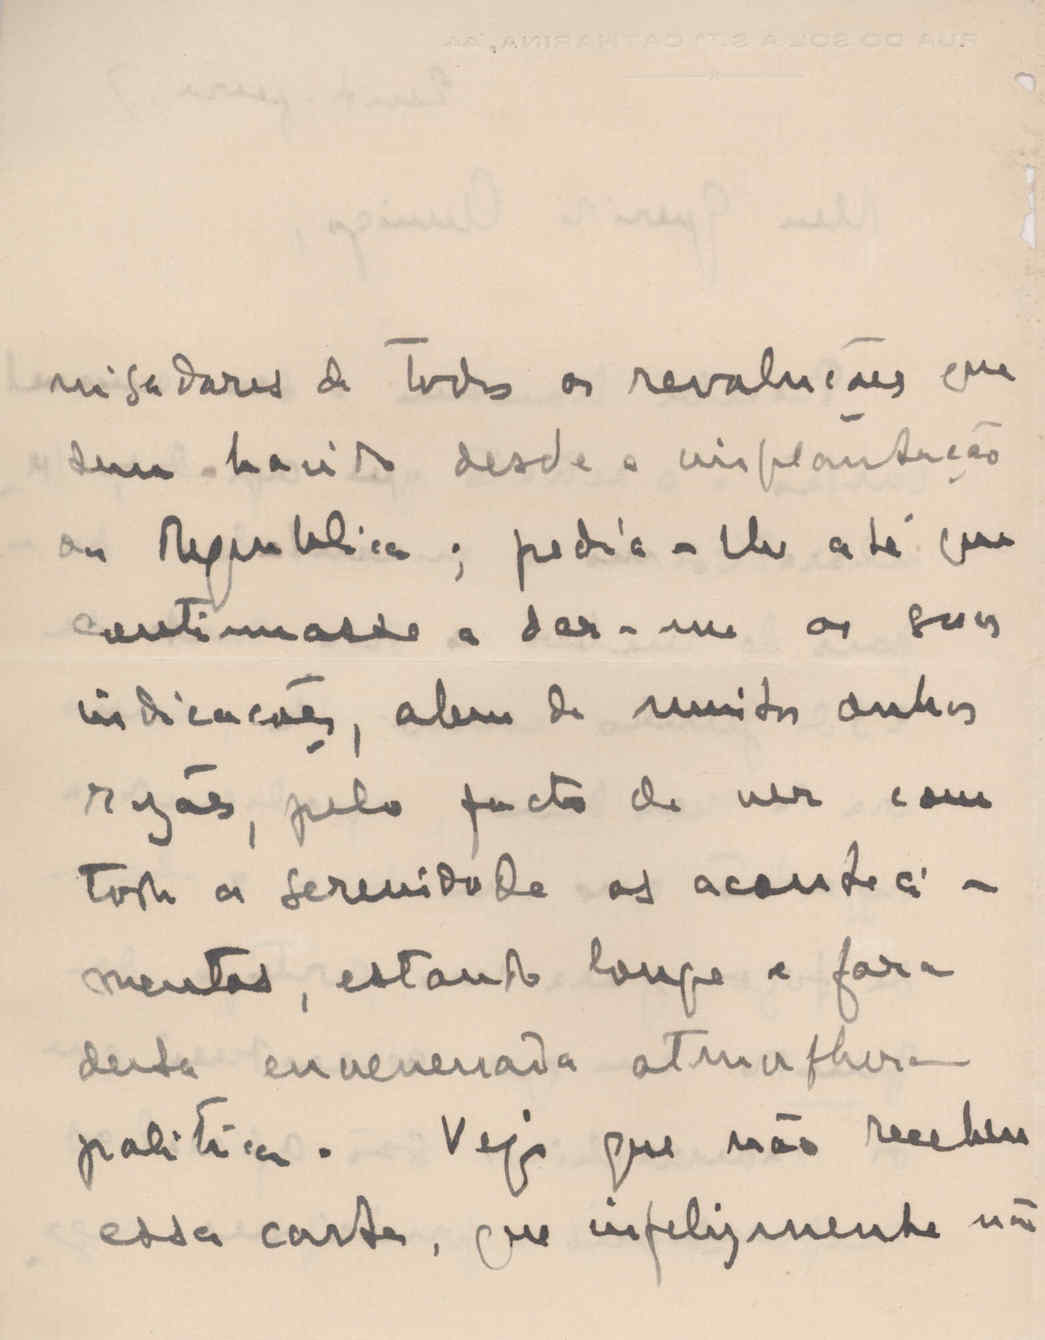 migadores de todas as revoluções que
tem havido desde a implantação
da Republica; pedia-lhe até que
continuasse a dar-me as suas
indicações, alem de muitas outras
razões, pelo facto de ver com
toda a serenidade os aconteci-
mentos, estando longe e fora
desta envenenada atmosphera
politica. Vejo que não recebeu
essa carta, que infelizmente não